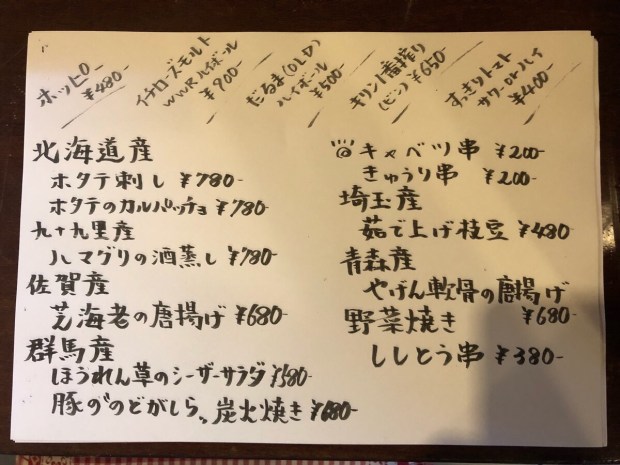 ホッピー
¥480-
イチローズモルト
WWRハイボール
¥900-
だるま(OLD)
ハイボール
¥500-
キリン一番搾り
(ビン)¥650-
すっきりトマト
サワーorハイ
¥400-
北海道産
ホタテ刺し ¥780-
ホタテのカルパッチョ ¥780-
九十九里産
ハマグリの酒蒸し ¥780-
佐賀産
芝海老の唐揚げ ¥680-
群馬産
ほうれん草のシーザーサラダ ¥580-
豚の"のどがしら"炭火焼き ¥680-
キャベツ串 ¥200-
きゅうり串 ¥200-
埼玉産
茹で上げ枝豆 ¥480-
青森産
やげん軟骨の唐揚げ
¥680-
野菜焼き
ししとう串 ¥380-